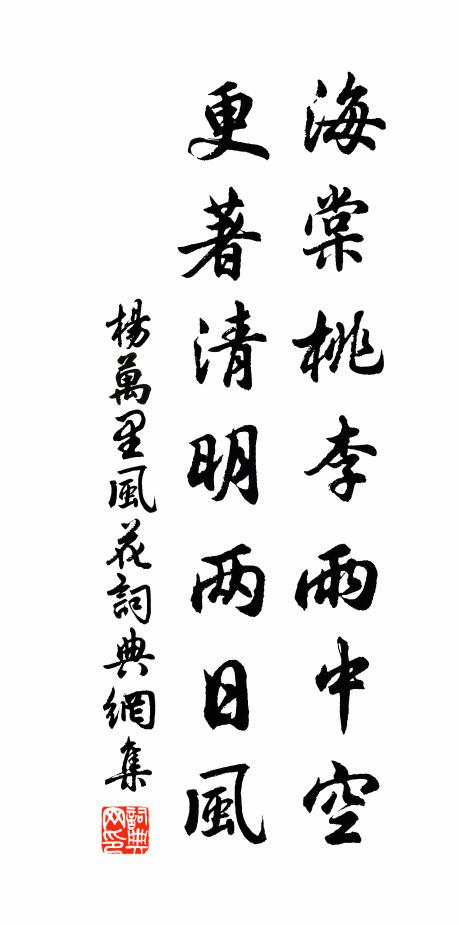 海棠桃李雨中空
更著清明两日風
楊萬里風花詞典網集
詞典
网印